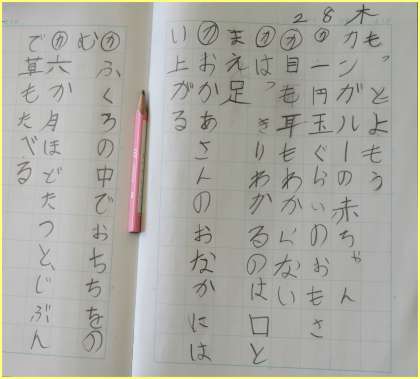 28木
もっとよもう
カンガルーの赤ちゃん
㋕一円玉ぐらいのおもさ
㋕目も耳もわからない
㋕はっきりわかるのは口と
まえ足
㋕おかあさんのおなかには
い上がる
㋕ふくろの中でおちちをの
む
㋕六か月ほどたつと、じぶん
で草もたべる